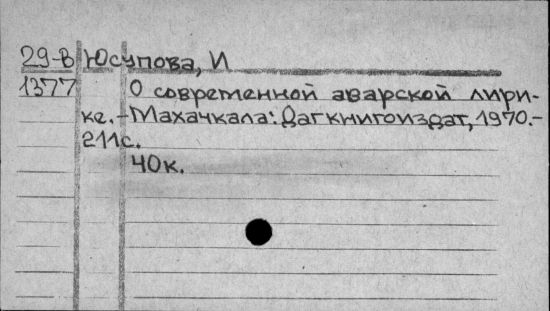 29-В Юсупова, И
1377 О современной аварской лири-
ке.-Махачкала: Дагкнигоиздат, 1970.-
211с.
40к.